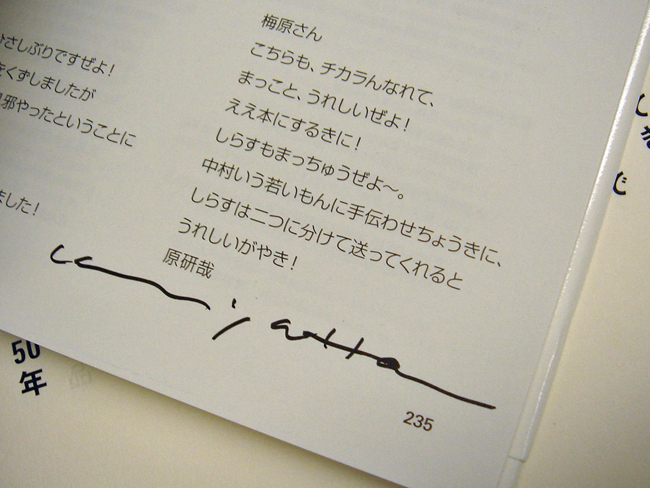 ひさしぶりですぜよ！
くずしましたが
邪やったということに
ました！
梅原さん
こちらも、チカラんなれて、
まっこと、うれしいぜよ！
ええ本にするきに！
しらすもまっちゅうぜよ〜。
中村いう若いもんに手伝わせちょうきに、
しらすは二つに分けて送ってくれると
うれしいがやき！
原研哉
235
50
年
じ